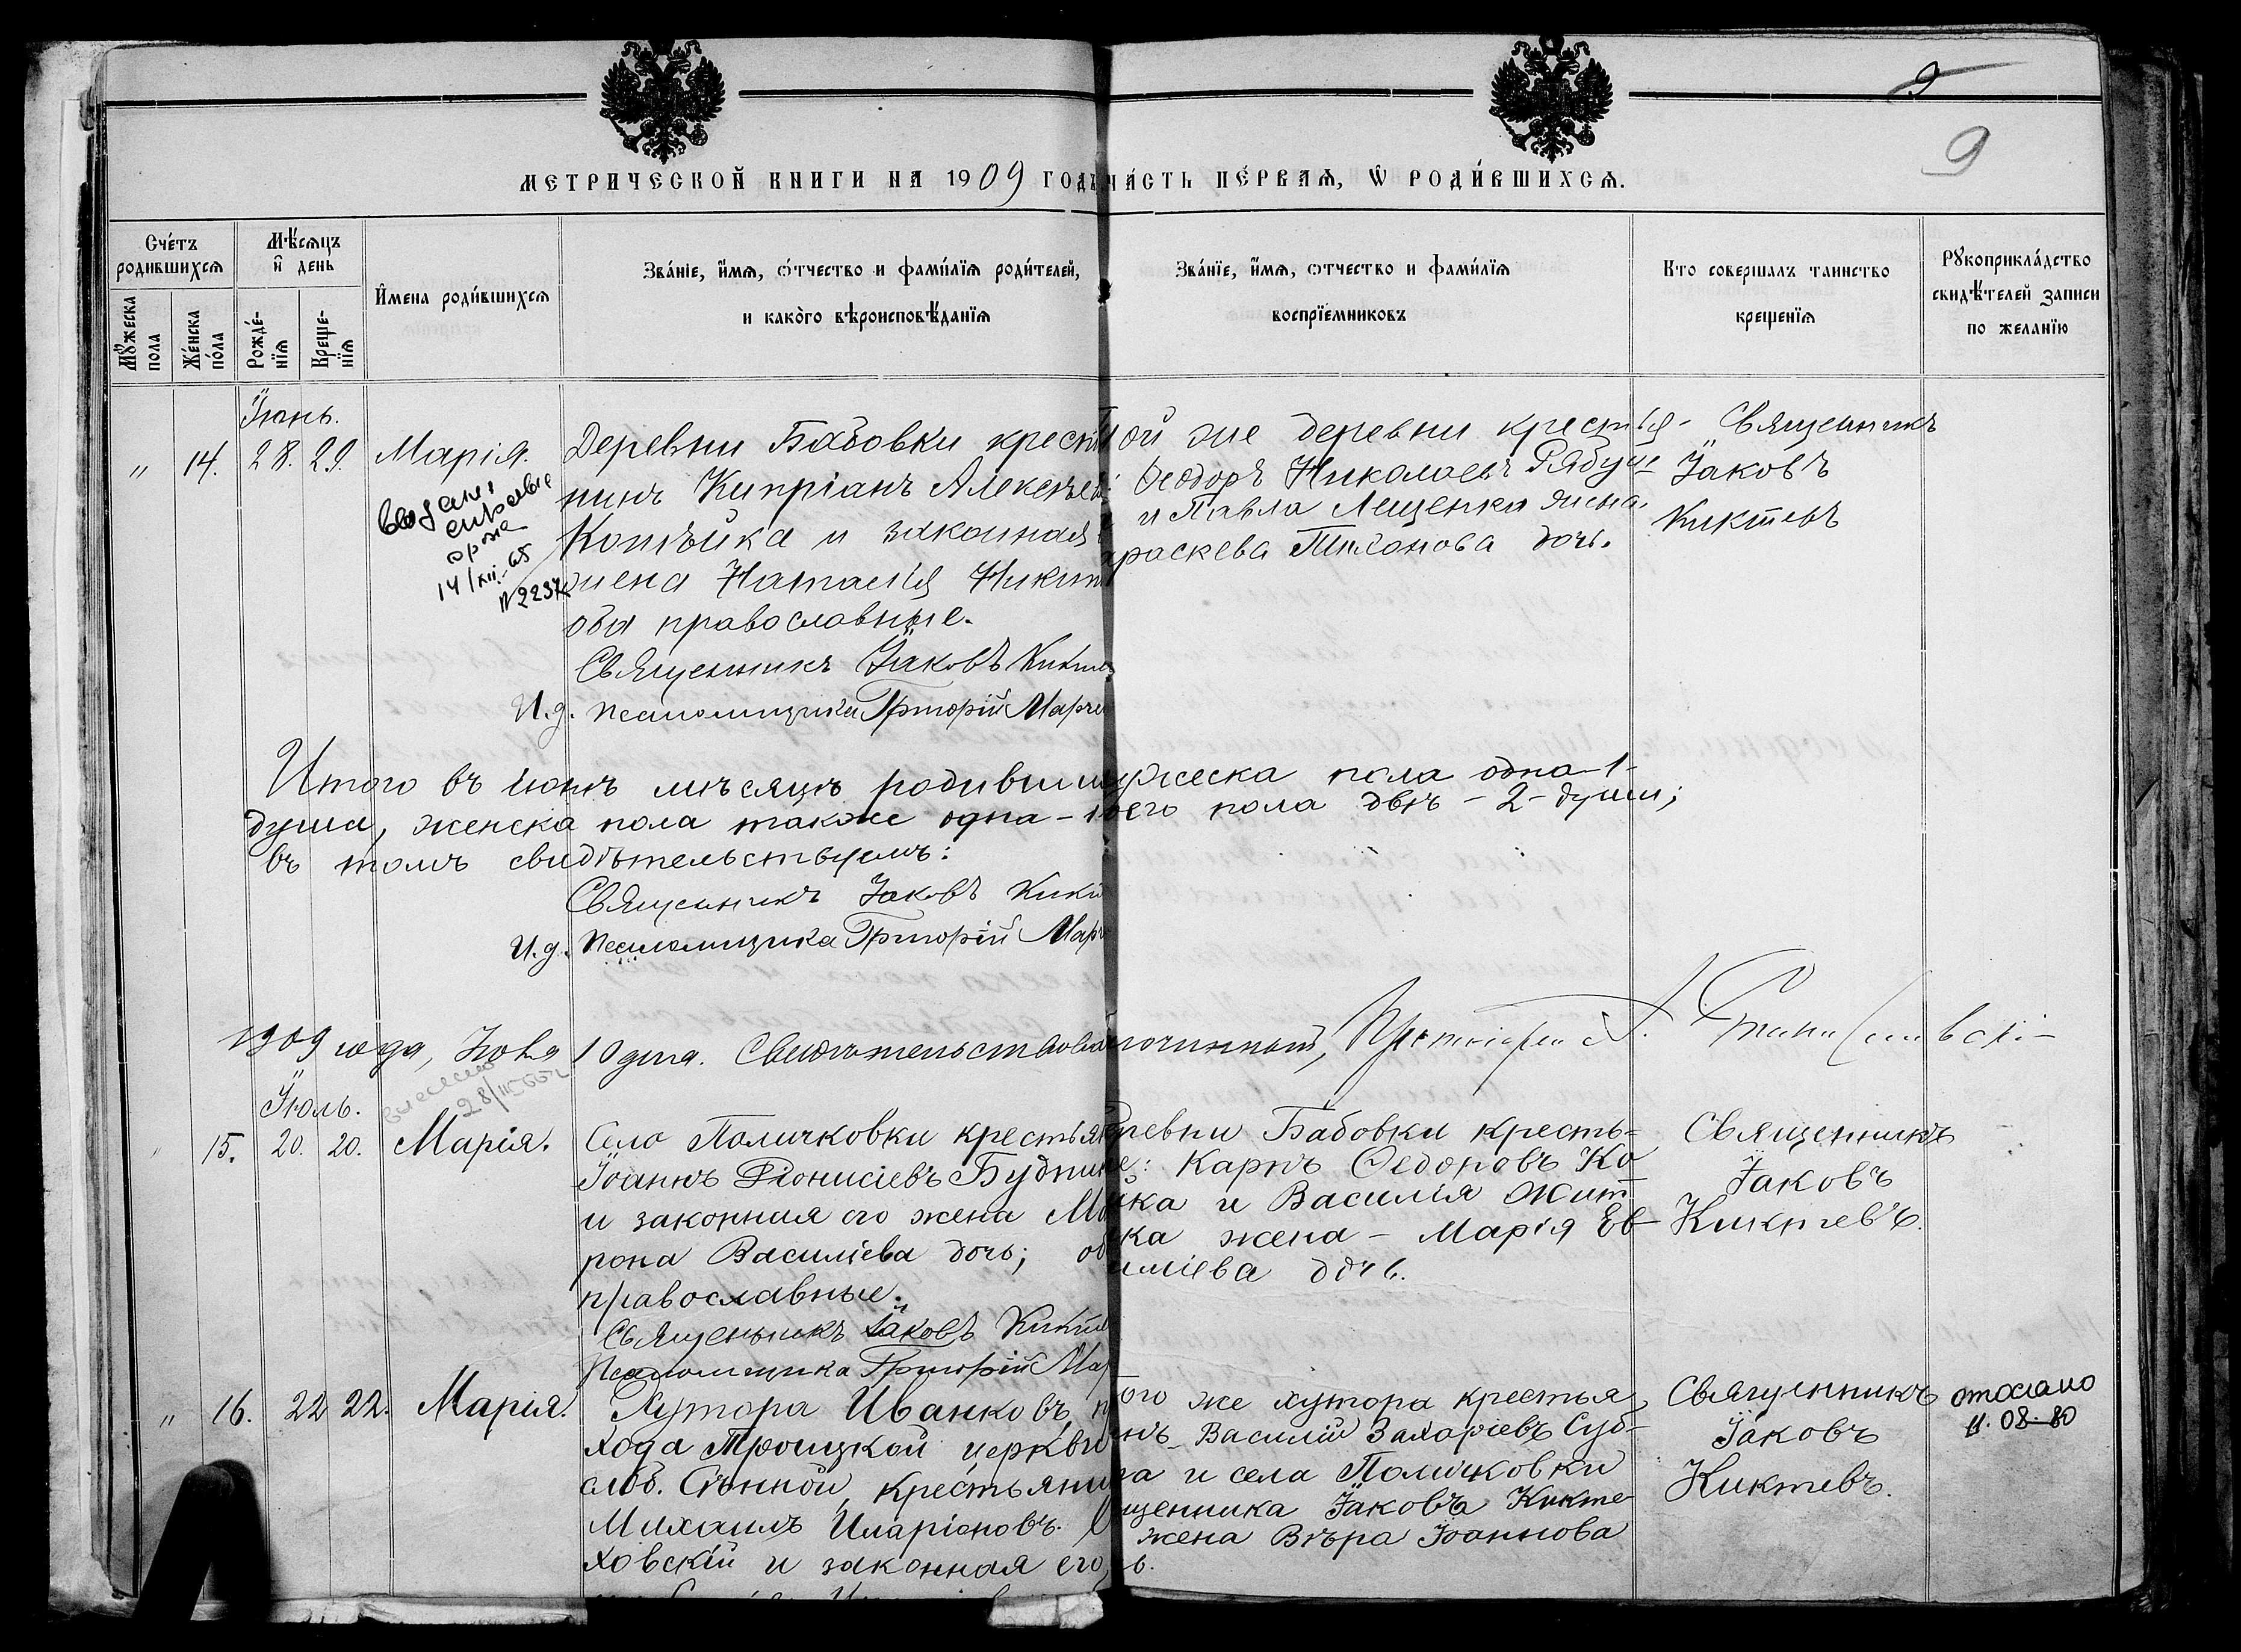 9
9
МЕТРИЧЕСКОЙ КНИГИ НА 1909 ГОДЪ ЧА́СТЬ ПЕ́РВАѦ, Ѡ РОДИ́ВШИХСѦ.
Сче́тъ родившихсѧ
Мѣ́сѧцъ и҆ день
И҆мена роди́вшихсѧ
Зва́нїе, и҆́мѧ, ѻ҆́тчество и фами́лїѧ роди́телей,
и како́го вѣроисповѣ́данїѧ
Зва́нїе, и҆́мѧ, ѻтчество и фами́лїѧ
воспрїемниковъ
Кто совершалъ таинство
крещенїѧ
Рꙋкоприкла́дство
свидѣ́телей записи
по желанїю
Мꙋ́жеска пола
Же́нска по́ла
Рожде́-нїѧ
Креще-нїѧ
Іюнь.
" 14. 28. 29. Марія.
14/XII-65
Деревни Бабовки крестья
нинъ Кипріанъ Алексѣев
Копѣйка и законная
жена Наталія Никит
оба православные.
Священникъ Іаковъ Кикте
И.д. псаломщика Григорій Марче
ой же деревни крестья-
Ѳеодоръ Николаевъ Рябуш
и Павла Лещенка жена
араскева Тихонова дочь.
Священникъ
Іаковъ
Киктевъ
Итого въ іюнѣ мѣсяцѣ родивши мужеска пола одна-1-
душа, женска пола также одна-1 оего пола двѣ-2-души;
въ томъ свидѣтельствуемъ:
Священникъ Іаковъ Кикт
И.д. псаломщика Григорій Марч
1909 года, 10 дня. Свидѣтельствова гочинный, Протоіерей
28/III
Іюль.
15. 20. 20. Марія.
Село Поличковки крестьян
Іоаннъ Діонисіевъ Будник
и законная его жена Мат
рона Василіева дочь; об
православные.
Священникъ Іаковъ Кикте
Псаломщика Григорій Мар
ревни Бабовки кресть=
не: Карпъ Ѳедоровъ Ко
йка и Василія Жит
ка жена - Марія Ев
иміева дочь.
Священникъ
Іаковъ
Киктевъ.
" 16. 22 22. Марія.
Хутора Иванковъ, п
хода Троицкой церкви
слоб. Сѣнной, крестьяни
Михаилъ Иларіоновъ
ховскій и законная его
ого же хутора крестья
инъ Василій Захаріевъ Суб-
а и села Поличковки
щенника Іаковъ Кикте
жена Вѣра Іоаннова
ь.
Священникъ
Іаковъ
Киктевъ.
отослано
11.08.80